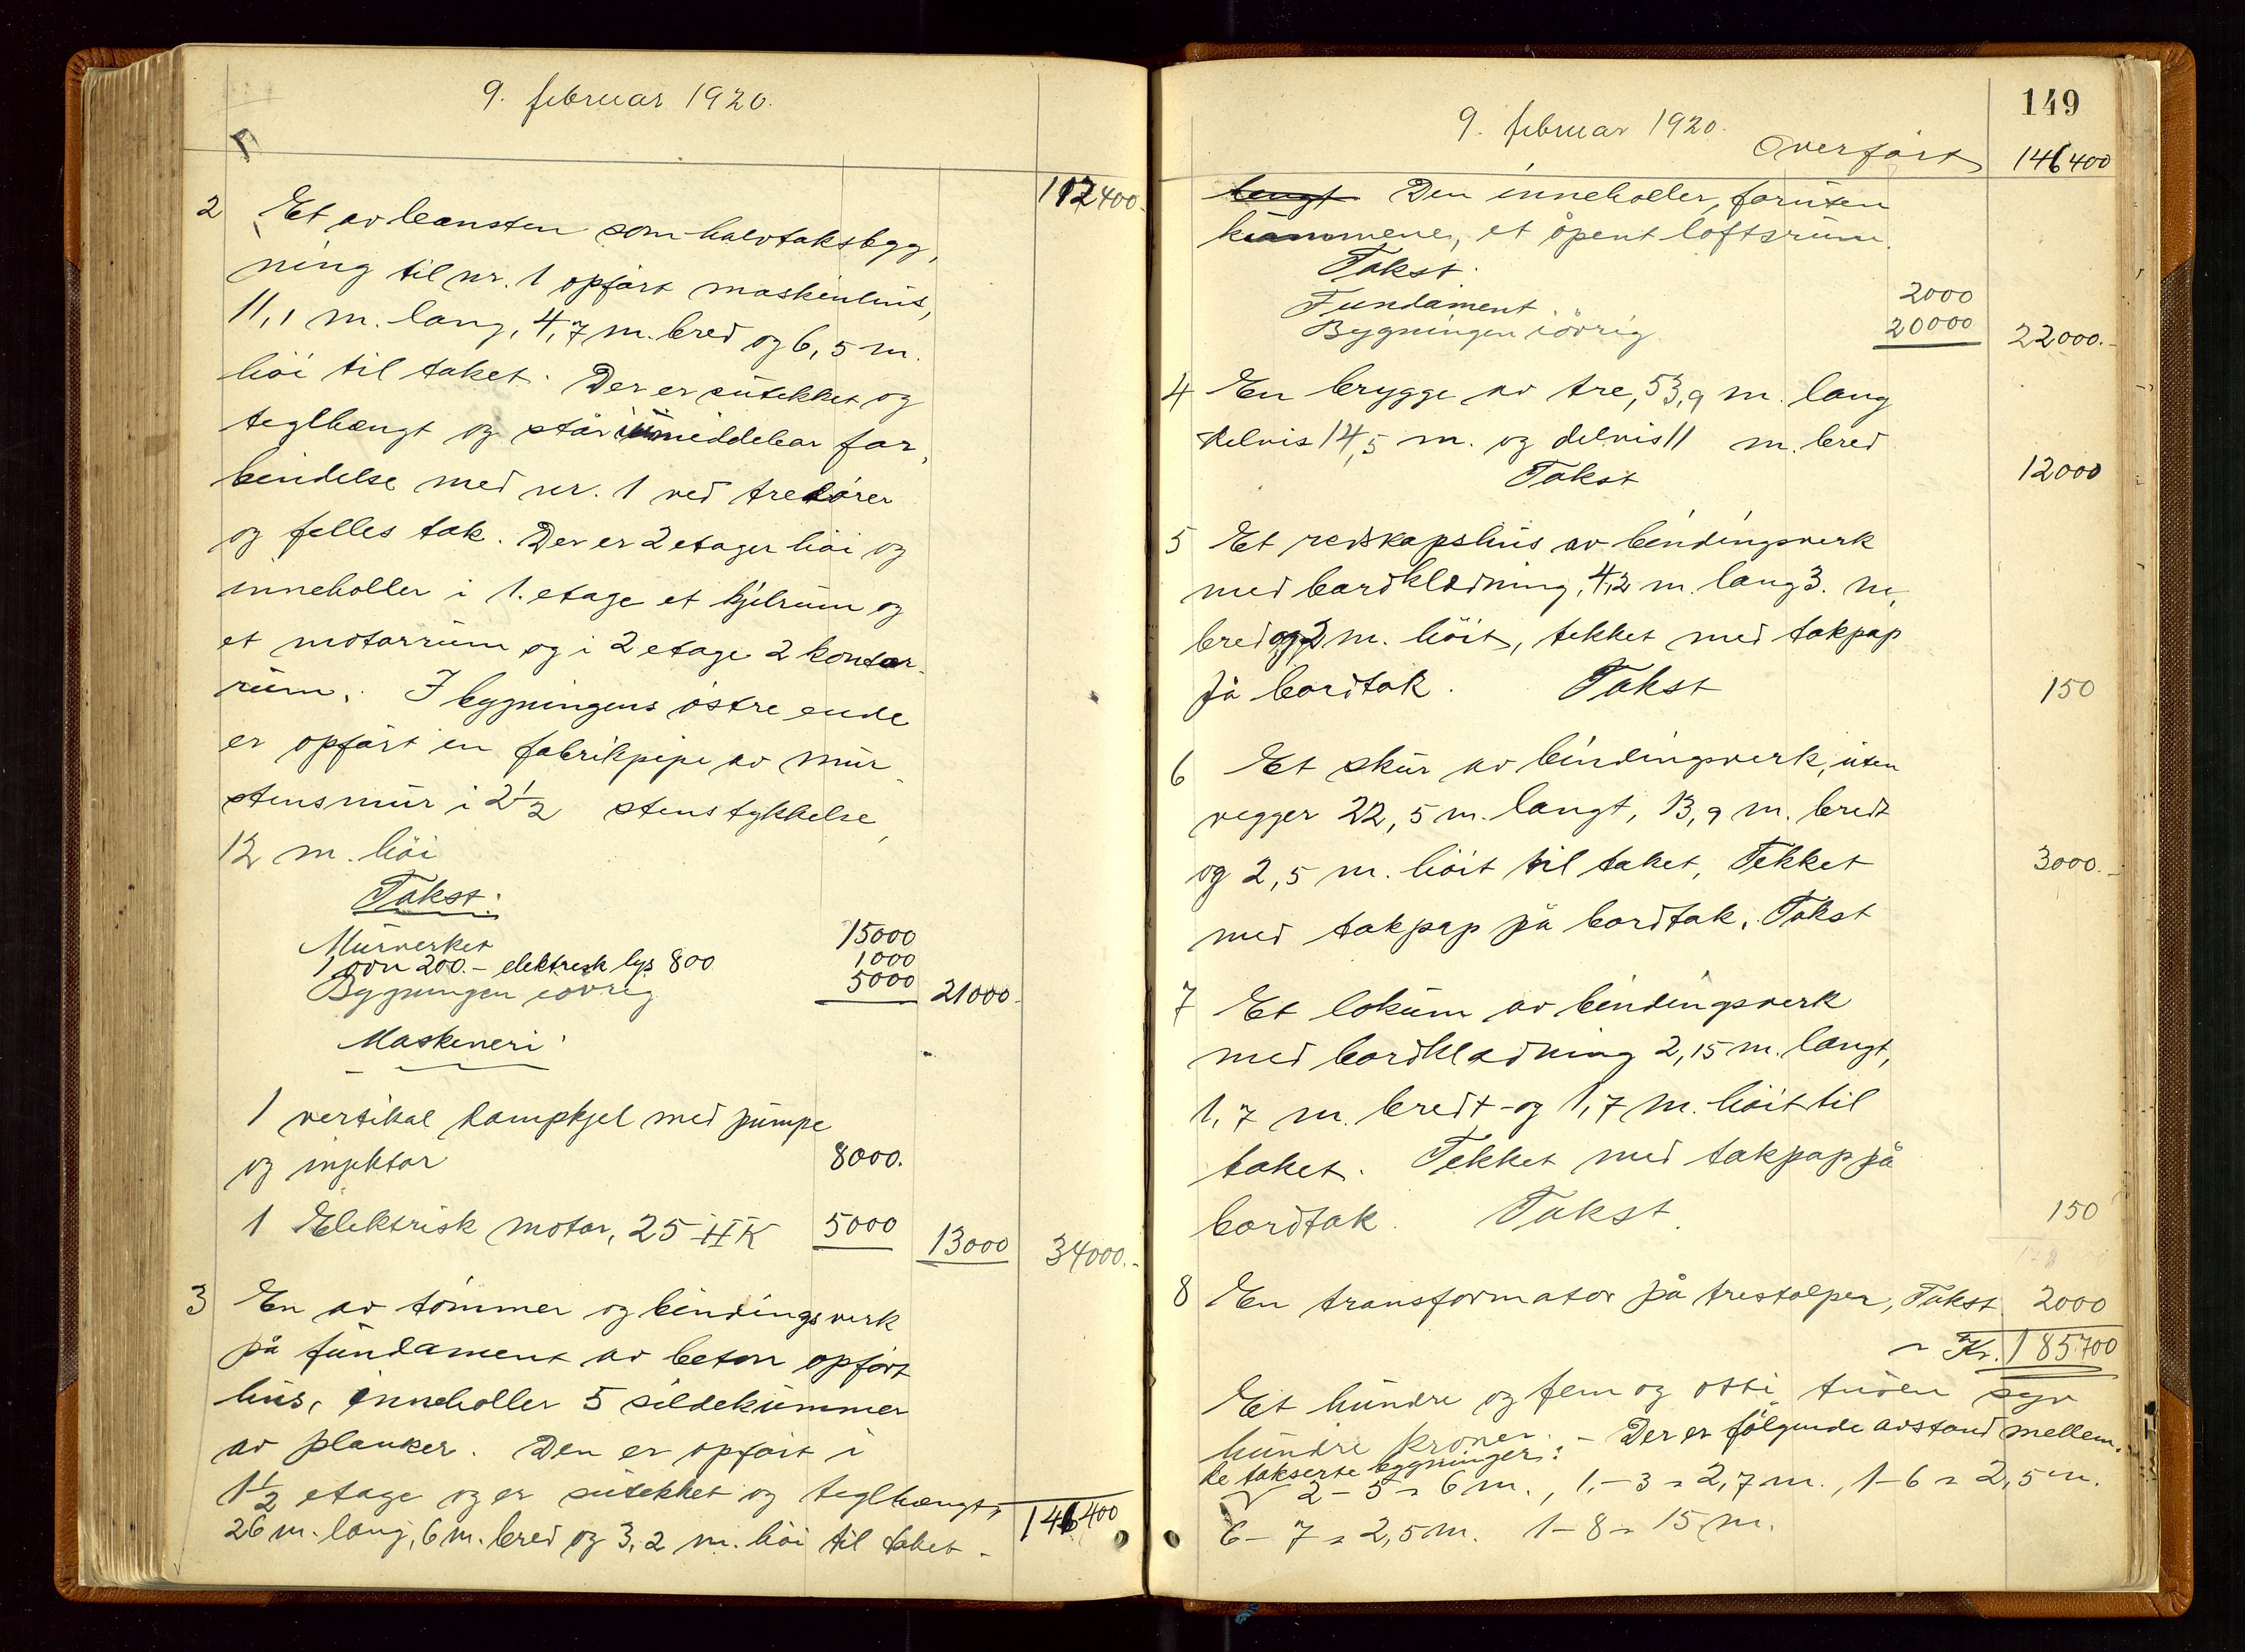 9. februar 1920.
112400.
2 Et av leansten som halvtaksbygg,
ning til nr. 1 opført maskinhus,
11,1 m. lang, 4,7 m. bred og 6,5 m.
høi til taket. Der er sutekket og
teglhængt og står i umiddelbar for,
bindelse med nr. 1 ved tredører
og felles tak. Der er 2 etager høi og
inneholler i 1. etage et kjelrum og
et motorrum og i 2 etage 2 kontor
rum. I bygningens østre ende
er opført en fabrikpipe av mur
stensmur i 2½ stenstykkelse,
12 m. høi
Takst:
Murverket 15000
1 ovn 200.- elektrisk lys 800 1000
Bygningen iøvrig 5000 21000.
Maskineri
1 vertikal dampkjel med pumpe
og injektor 8000.
1 Elektrisk motor, 25 HK 5000 13000 34000.-
3 En av tømmer og bindingsverk
på fundament av beton opført
hus, inneholler 5 sildekummer
av planker. Den er opført i
1½ etage og er sutekket og teglhængt,
26 m. lang, 6 m. bred og 3,2 m. høi til taket. 146400
149
9. februar 1920.
Overført 146400
lengt Den inneholler, foruten
kummene, et åpent loftsrum.
Takst.
Fundament 2000
Bygningen iøvrig 20000 22000.-
4 En brygge av tre, 53,9 m. lang
delvis 14,5 m. og delvis 11 m. bred
Takst 12000
5 Et redskapshus av bindingsverk
med bordklædning, 4,2 m. lang 3. m.
bred og 2 m. høit, tekket med takpap
på bordtak. Takst 150
6 Et skur av bindingsverk, uten
vegger 22,5 m. langt, 13,9 m. bredt
og 2,5 m. høit til taket, Tekket 3000.-
med takpap på bordtak. Takst
7 Et lokum av bindingsverk
med bordklædning 2,15 m. langt,
1,7 m. bredt og 1,7 m. høit til
taket. Tekket med takpap på
bordtak. Takst. 150
8 En transformator på trestolper, Takst 2000
Kr. 185700
Et hundre og fem og otti tusen syv
hundre kroner. - Der er følgende avstand mellem
de takserte bygninger:
2-5 = 6 m., 1-3 = 2,7 m., 1-6 = 2,5 m.
6-7 = 2,5 m. 1-8 = 15 m.